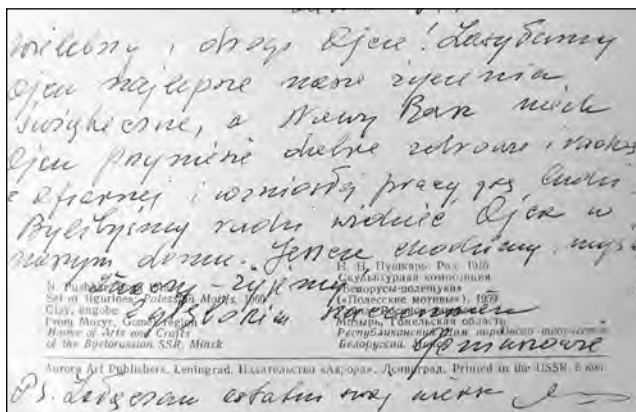 wielebny i drogi Ojcze! Zasyłamy
Ojcu najlepsze nasze życzenia
świąteczne, a Nowy Rok niech
Ojcu przyniesie dobre zdrowie i
z ofiarnej i wzniosłej pracy dla ludu.
Bylibyśmy radzi widzieć Ojca w
naszym domu. Jeszcze chodzimy,
N. Pushkar. Born
Set of figurines, Polessian Motifs, 1959
Clay, engobe
From Mozyr, Gomel region
Home of Arts and Crafts
of the Byelorussian SSR, Minsk
Н. Н. Пушкарь. Род. 1916
Скульптурная композиция
«Белорусы-полещуки»
(«Полесские мотивы»), 1959
Мозырь, Гомельская область
Республиканский Дом народного творчества
Белоруссии,
żyjemy
Z głębokim szacunkiem
Aurora Art Publishers. Leningrad. Издательство «Аврора». Ленинград. Printed in the USSR.
PS. ostatni mój wiersz